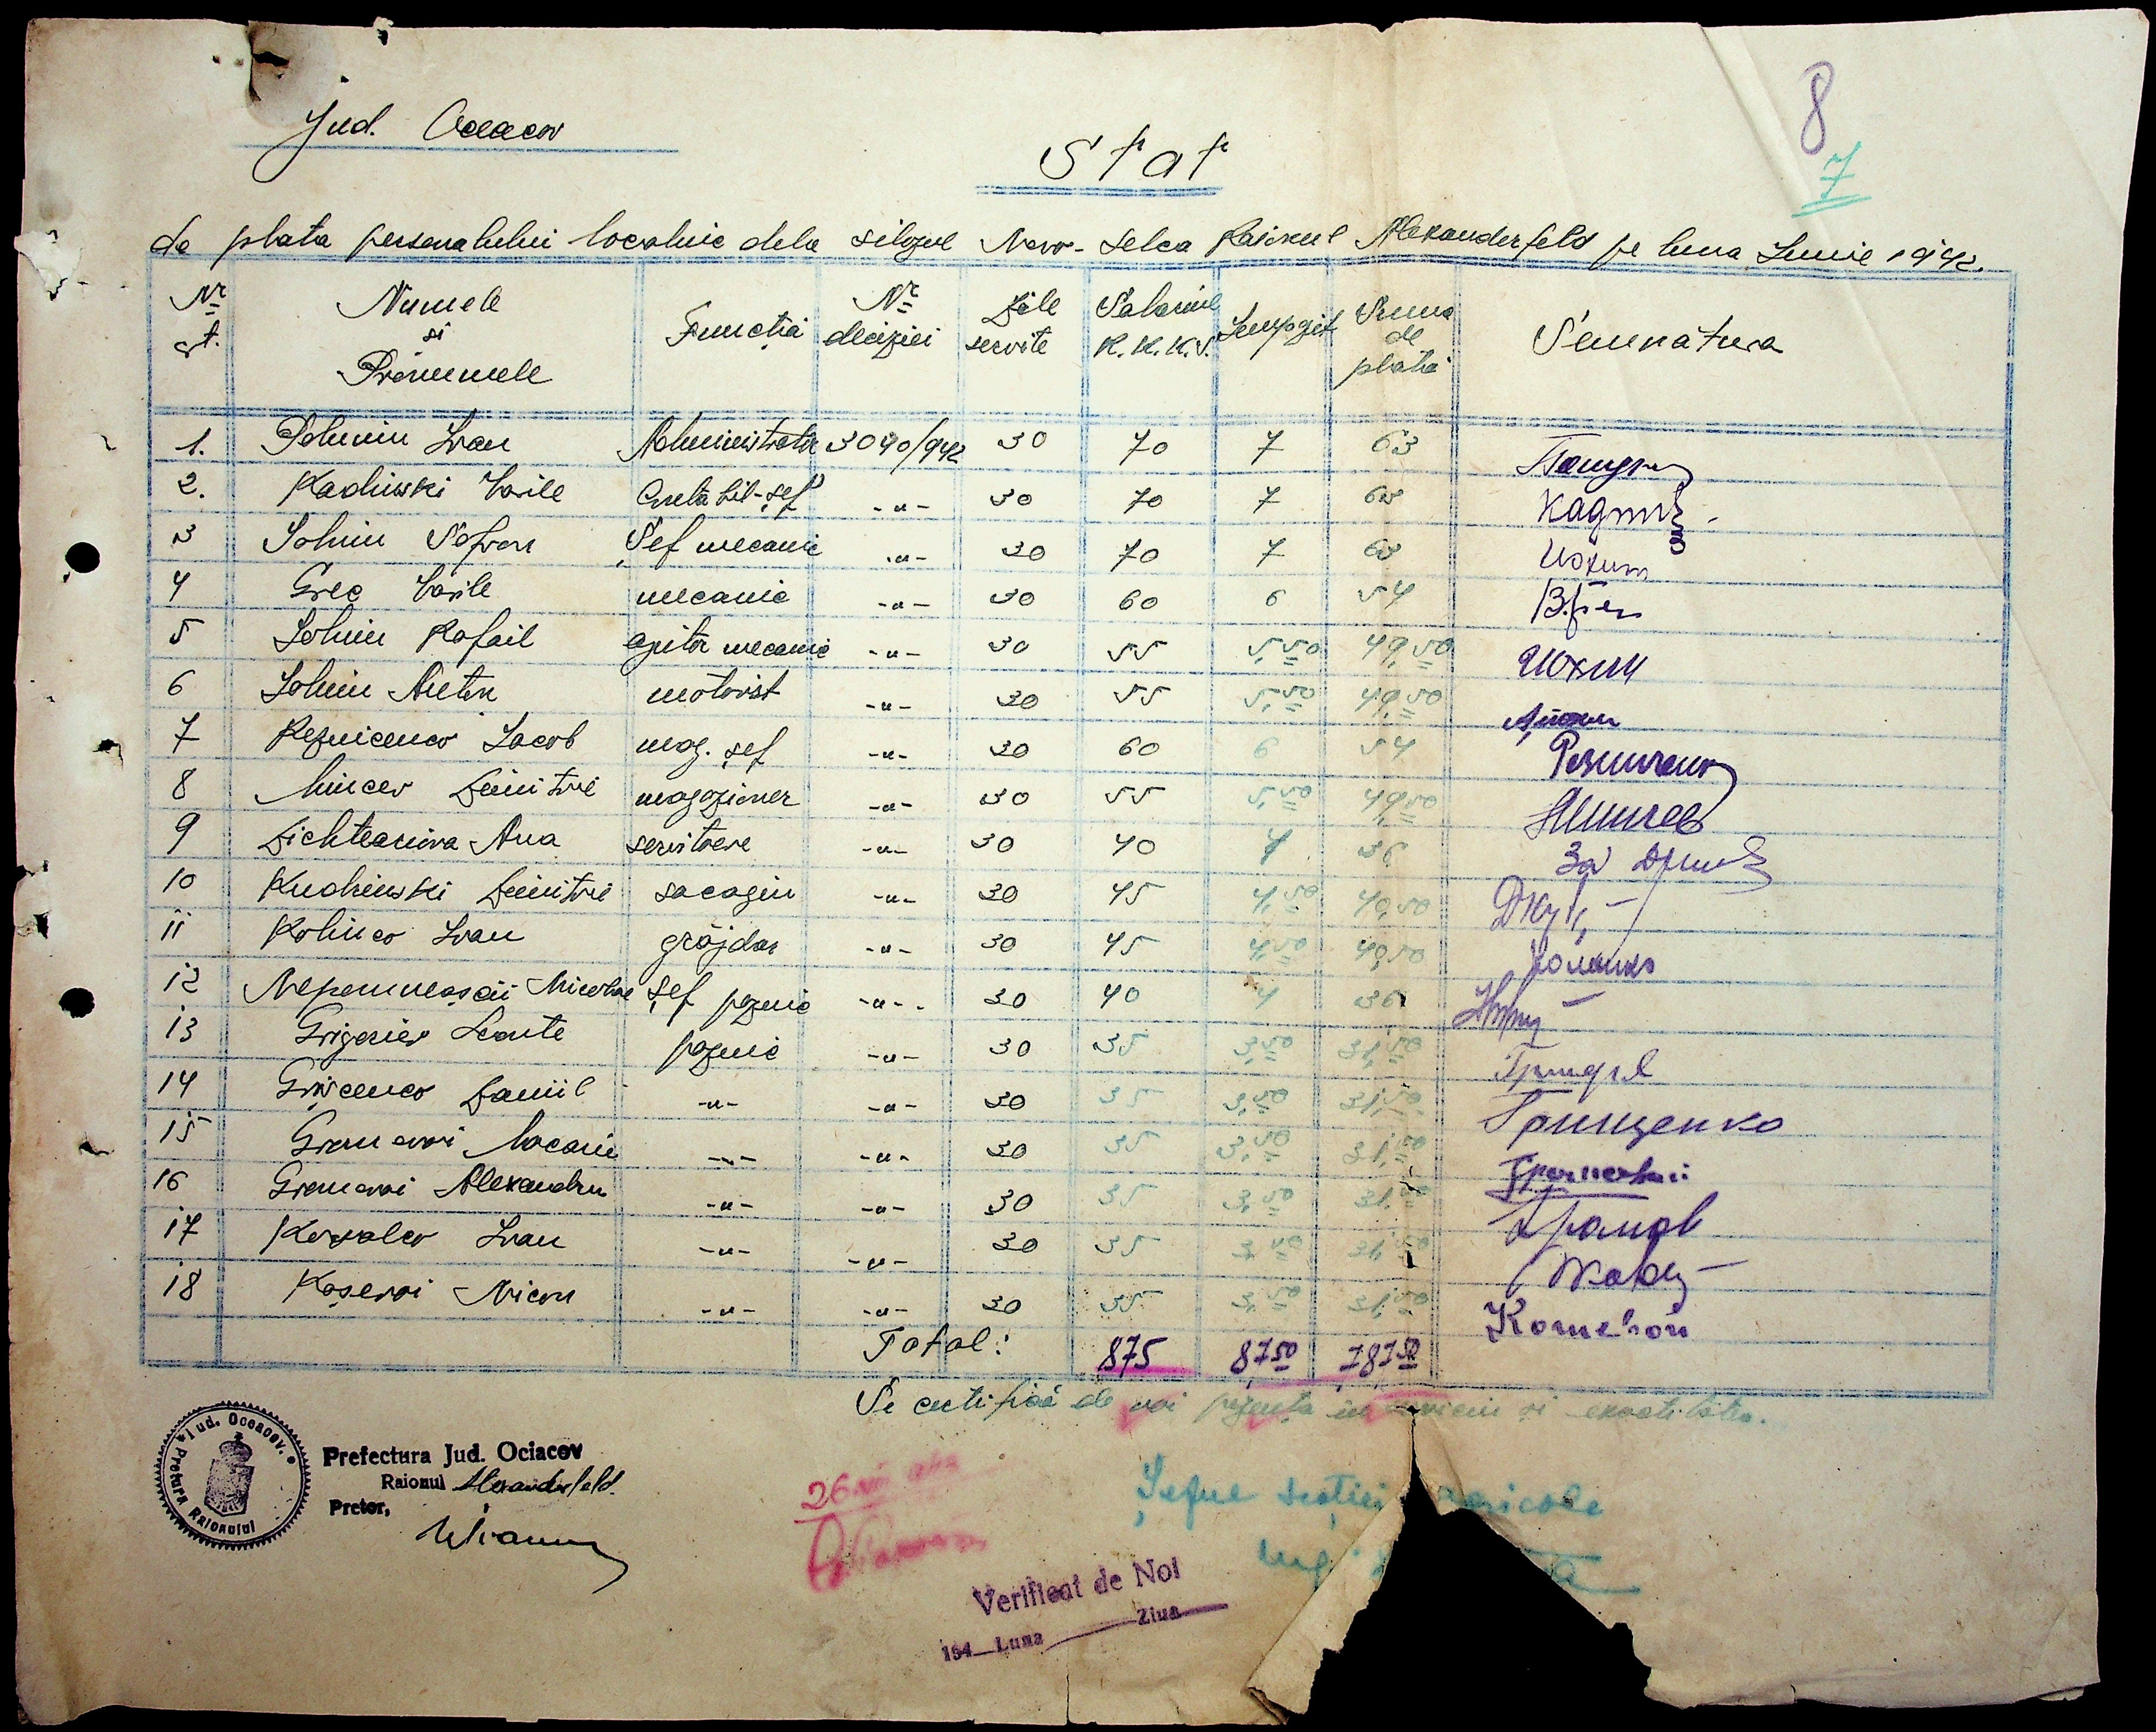 8
7
Jud. Oceacov
Stat
de plata personalului localnic dela silozul Novo-Selca Raionul Alexanderfeld pe luna Iunie 1942.
Nr crt. Numele si Prenumele Funcția Nr deciziei Zile servite Salariul R.K.K.S. Impozit Suma de plată Semnatura
1. Ivan Administrator 3040/942 30 70 7 63
2. Kadinski Vasile Contabil-șef -"- 30 70 7 63
3 Iohim Sofron Șef mecanic -"- 30 70 7 63 Иохим
4 Grec Vasile mecanic -"- 30 60 6 54 В.Грек
5 Iohim Rafail ajutor mecanic -"- 30 55 5,50 49,50 Иохим
6 Iohim Anton motorist -"- 30 55 5,50 49,50
7 Reznicenco Iacob mag. șef -"- 30 60 6 54 Резниченко
8 Mincev Dimitrie magazioner -"- 30 55 5,50 49,50 Минчев
9 Dichteariova Ana servitoare -"- 30 40 4 36 За
10 Kudrinski Dimitrie sacagiu -"- 30 45 4,50 40,50
11 Kolinco Ivan grăjdar -"- 30 45 4,50 40,50 Колинко
12 Nepomneașcii Nicolae Șef paznic -"- 30 40 4 36
13 Grigoriev Leonte paznic -"- 30 35 3,50 31,50
14 Grișcenco Daniil -"- -"- 30 35 3,50 31,50 Грищенко
15 Gramovoi Macarie -"- -"- 30 35 3,50 31,50 Громовой
16 Gramovoi Alexandru -"- -"- 30 35 3,50 31,50
17 Kovalev Ivan -"- -"- 30 35 3,50 31,50
18 Koșevoi Nicon -"- -"- 30 35 3,50 31,50 Кошевой
Total: 875 87,50 787,50
Se certifică de noi prezența in serviciu și exactitatea.
Jud. Oceacov. Pretura Raionului
Prefectura Jud. Ociacov
Raionul Alexanderfeld.
Pretor,
26
Șeful secției agricole
Ing.
Verificat de Noi
194 Luna Ziua